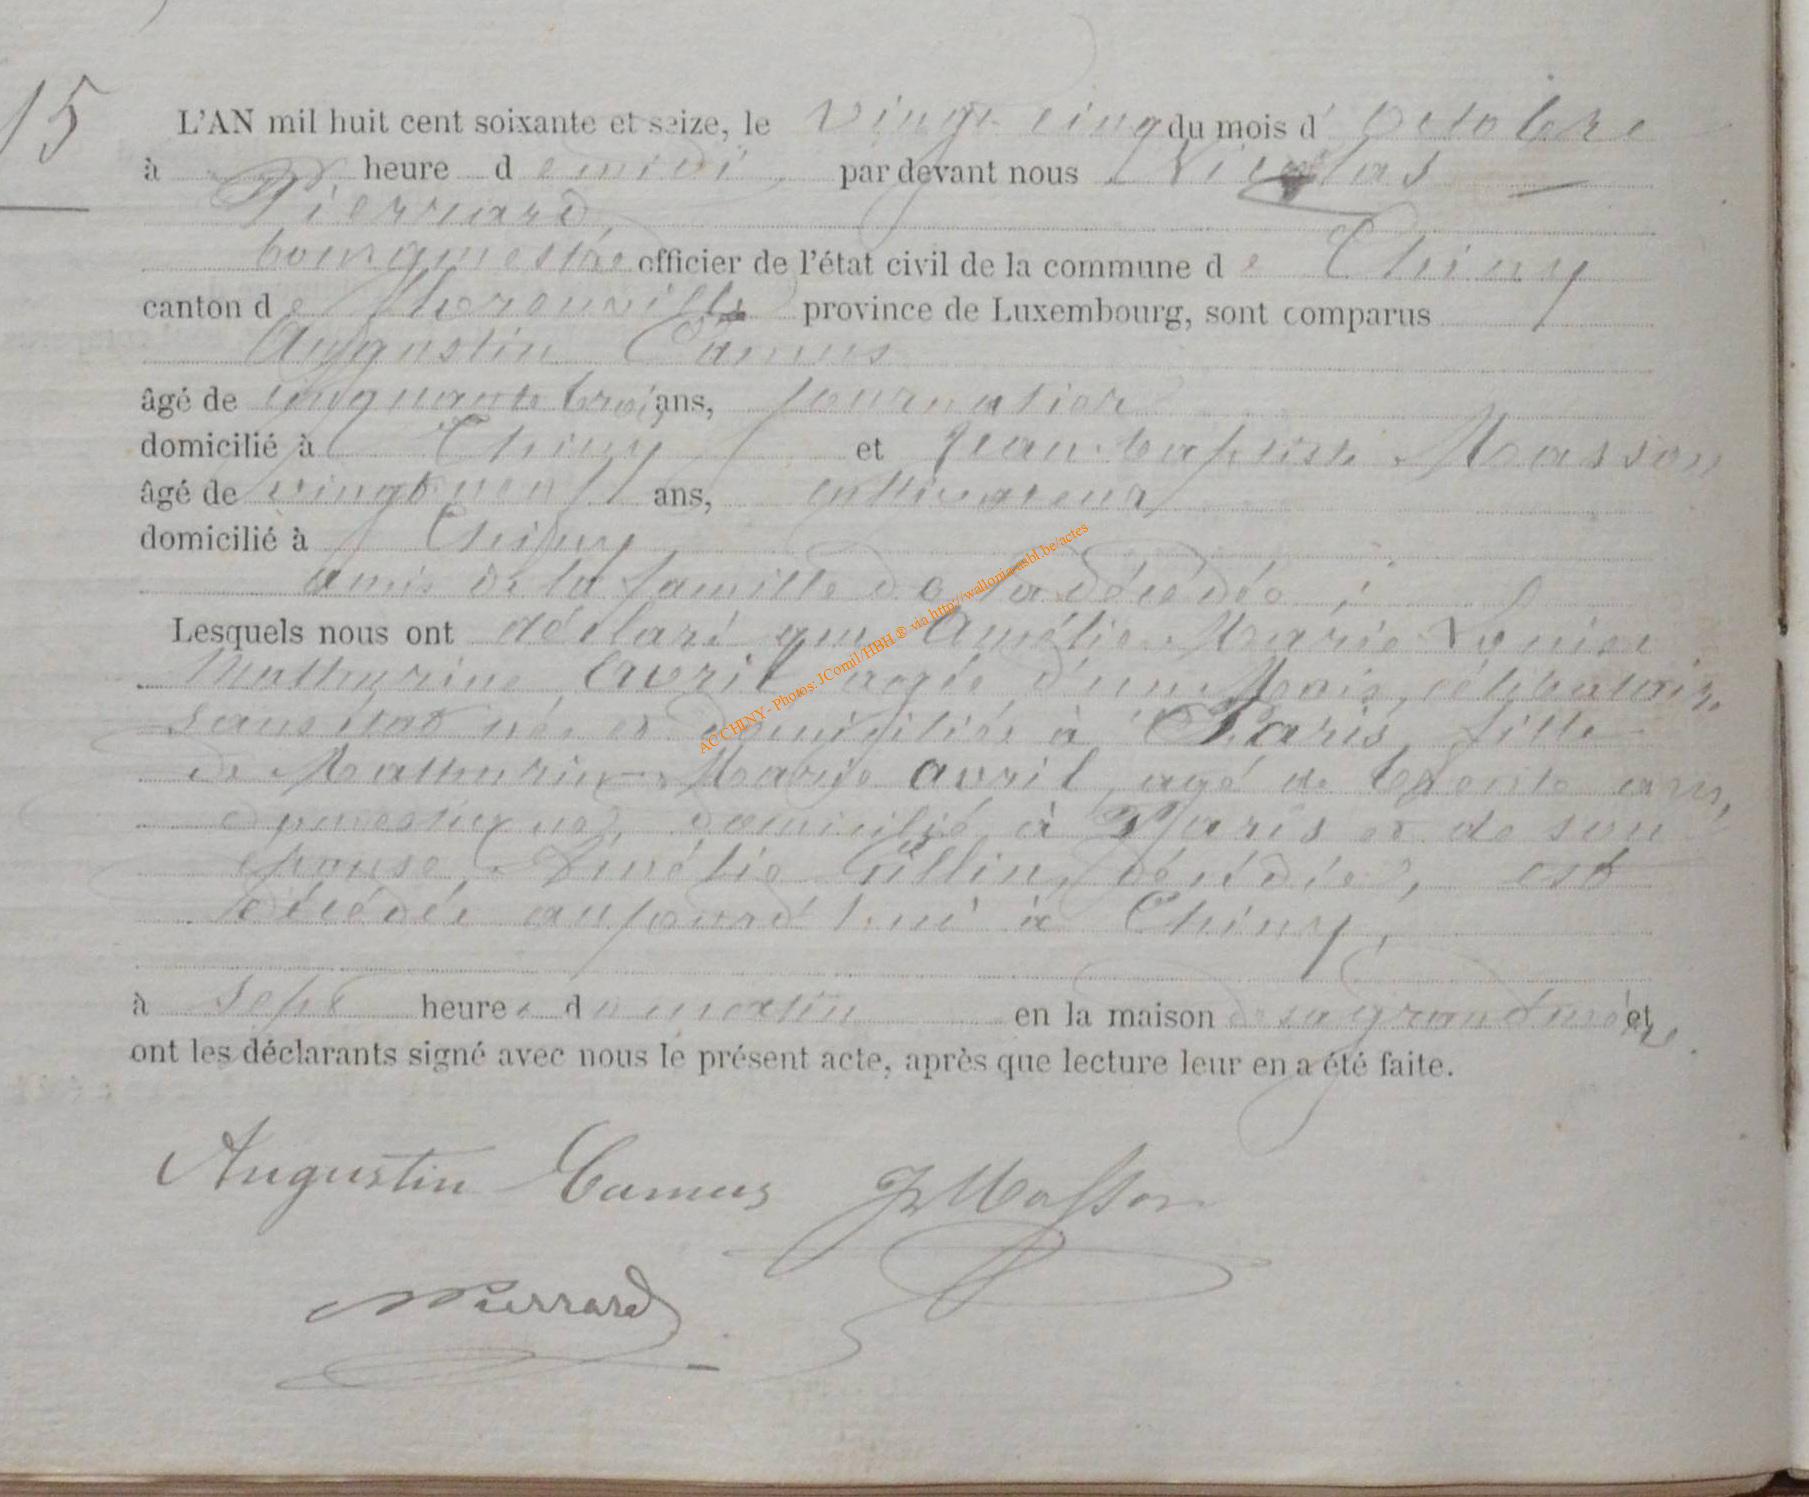 15
L'AN mil huit cent soixante et seize, le vingt cinq du mois d'Octobre
à heure de midi, par devant nous Nicolas
Pierrard
bourgmestre officier de l'état civil de la commune de Chiny
canton de florenville province de Luxembourg, sont comparus
Augustin Camus
âgé de cinquante trois ans, journalier
domicilié à Chiny et Jean-baptiste Masson
âgé de vingt neuf ans, cultivateur
domicilié à Chiny
amis de la famille de la décédée ;
Lesquels nous ont déclaré que Amélie Marie Louise
Mathurine Avril agée d'un Mois, célibataire,
sans état née et domiciliée à Paris, fille
de Mathurin-Marie avril, agé de trente ans,
domestique, domicilié à Paris et de son
épouse Amélie est
décédée aujourd'hui à Chiny,
à sept heures du matin en la maison de sa grand mère et
ont les déclarants signé avec nous le présent acte, après que lecture leur en a été faite.
Augustin Camus JBMasson
NPierrard
AC CHINY - Photos: JComil/HBH ® via http://wallonia-asbl.be/actes